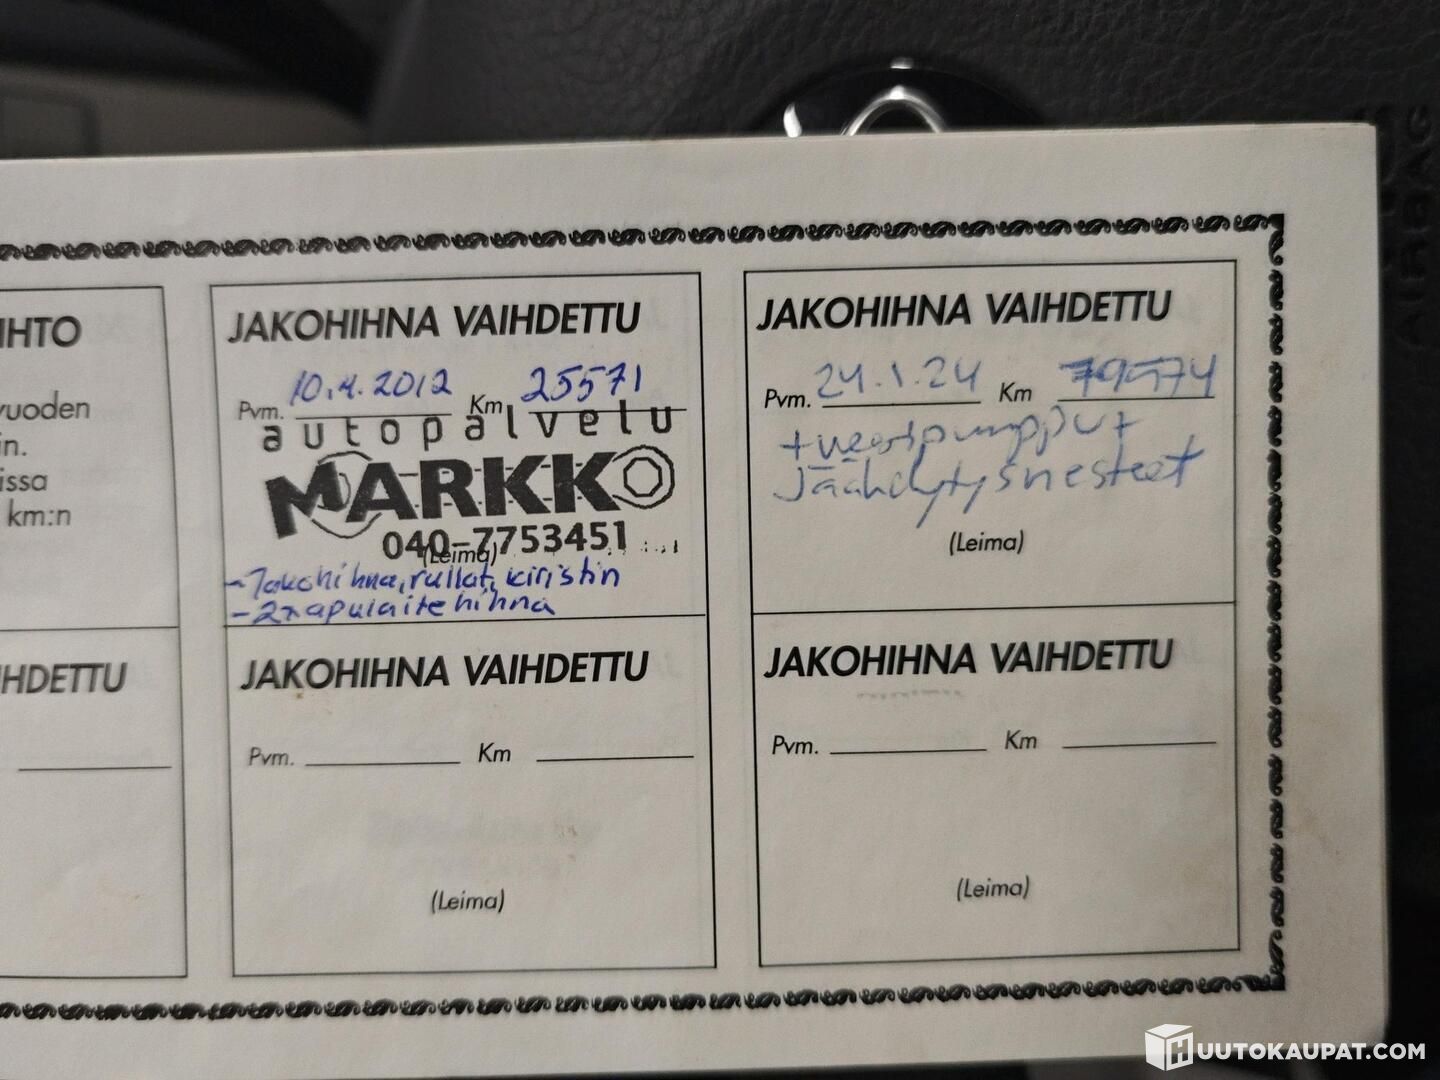 IHTO
vuoden
in.
issa
km:n
JAKOHIHNA VAIHDETTU
Pvm. 10.4.2012 Km 25571
autopalvelu
MARKKO
040-7753451
(Leima)
- Jakohihna, rullat, kiristin
- 2x apulaitehihna
JAKOHIHNA VAIHDETTU
Pvm. 24.1.24 Km 79574
+ vesipumpput
Jäähdytysnesteet
(Leima)
HDETTU
JAKOHIHNA VAIHDETTU
Pvm. Km
(Leima)
JAKOHIHNA VAIHDETTU
Pvm. Km
(Leima)
AIRBAG
HUUTOKAUPAT.COM